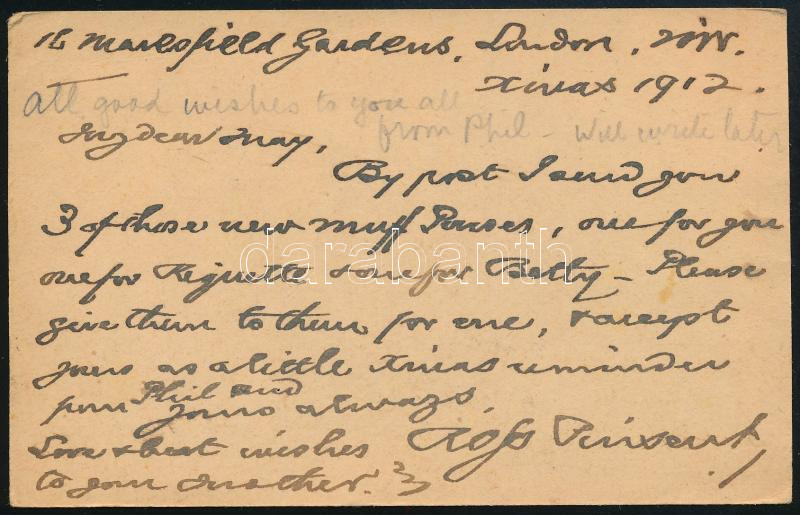 16 Maresfield Gardens, London, N.W.
Xmas 1912.
All good wishes to you all
from Phil - Will write later
My dear May,
By post I send you
3 of those new muff Purses, one for you
one for & one for Betty - Please
give them to them for me, & accept
yours as a little Xmas reminder
from Phil and
Yours always,
Love & best wishes Ross Pinsent,
to your Mother.
darabanth